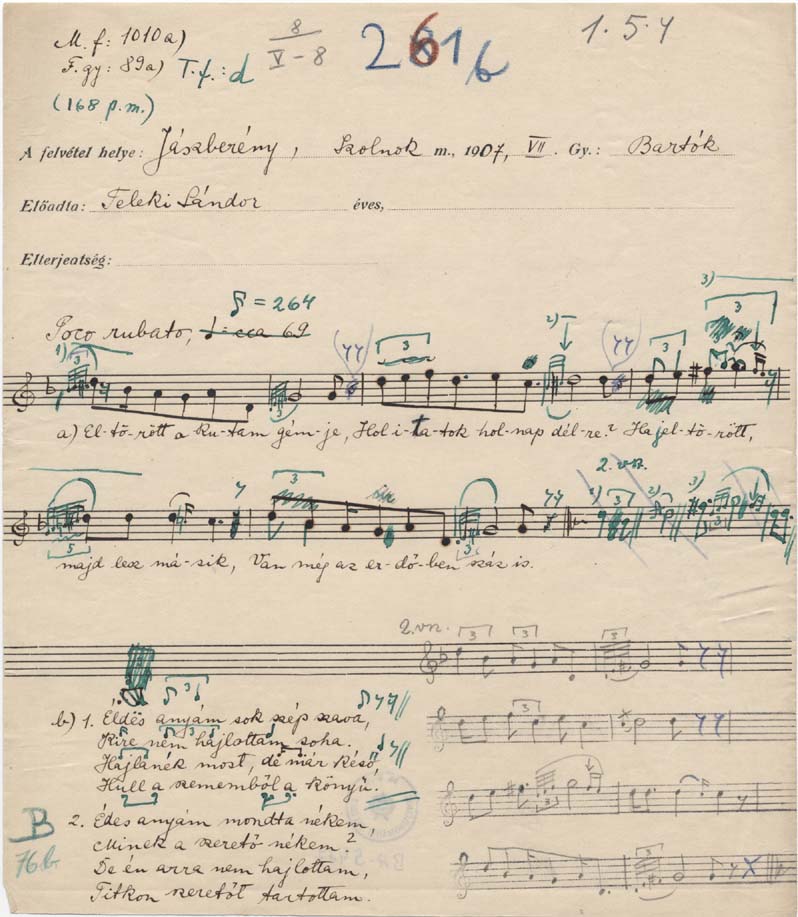 M. f: 1010a)
8
V-8
2661b
1.5.4
F. gy: 89a)
T. f.: d
(168 p.m.)
A felvétel helye: Jászberény, Szolnok m., 1907, VII. Gy.: Bartók
Előadta: Teleki Sándor éves,
Elterjeatség:
= 264
Poco rubato, = cca 69
1) 3 3 2) 3 3) 3
a) El-tö-rött a ku-tam gém-je, Hol i-ta-tok hol-nap dél-re? Ha jel-tö-rött,
3 2. vsz.
1) 3 2) 3) 3
5 3
majd lesz má-sik, Van még az er-dő-ben száz is.
2. vsz. 3 3 3
3
b) 1. Édës anyám sok szép szava,
Kire nem hajlottam soha.
Hajlanék most, de már késő,
Hull a szememből a könyű.
2. Édes anyám mondta nékem,
Minek a szerető nékem?
De én arra nem hajlottam,
Titkon szeretőt tartottam.
3
3
B
76b.